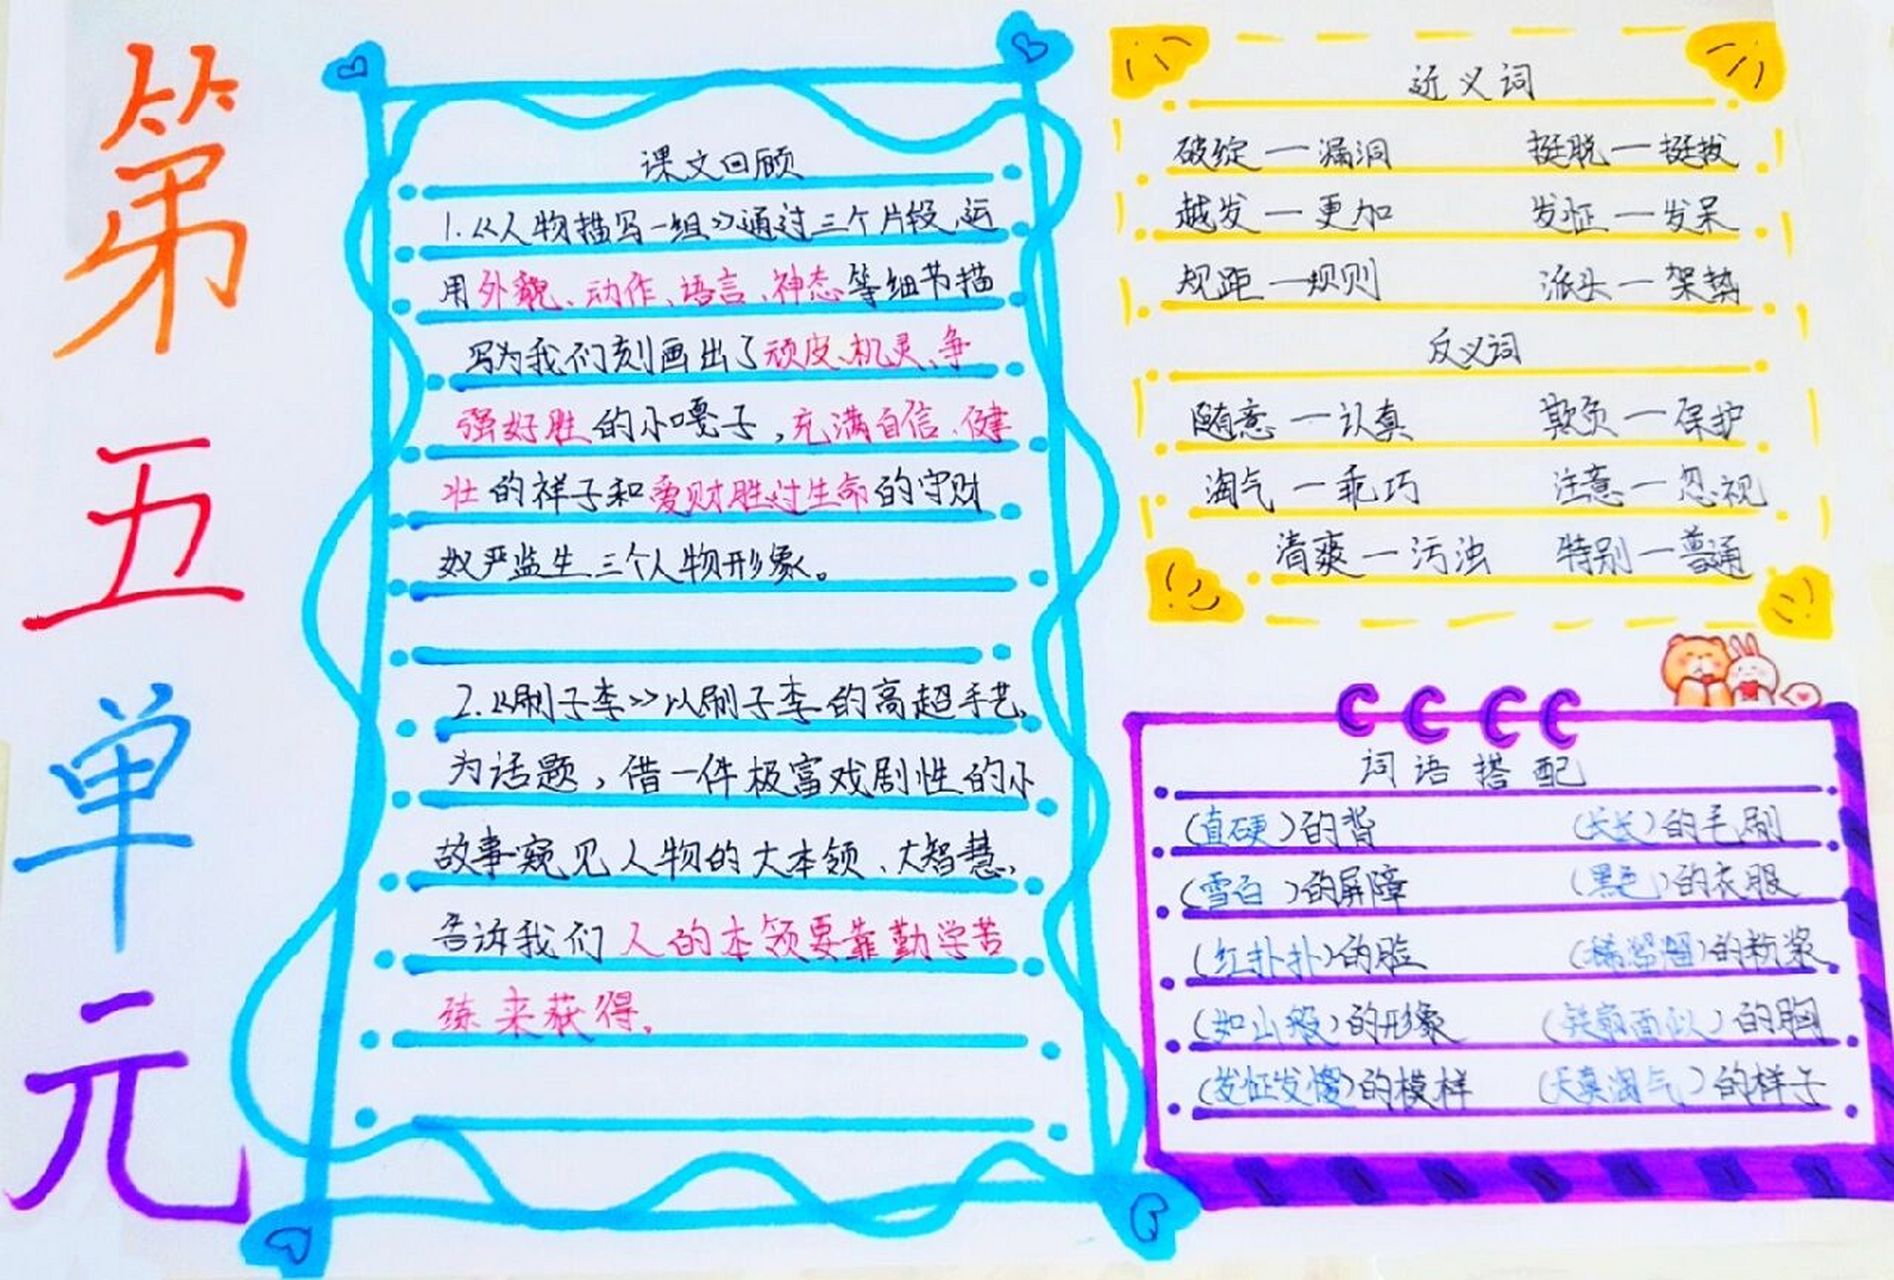 第五单元
课文回顾
1.《人物描写一组》通过三个片段,运
用外貌、动作、语言、神态等细节描
写为我们刻画出了顽皮、机灵、争
强好胜的小嘎子,充满自信、健
壮的祥子和爱财胜过生命的守财
奴严监生三个人物形象。
2.《刷子李》以刷子李的高超手艺,
为话题,借一件极富戏剧性的小
故事窥见人物的大本领、大智慧,
告诉我们人的本领要靠勤学苦
练来获得。
近义词
破绽—漏洞 挺脱—挺拔
越发—更加 发怔—发呆
规距—规则 派头—架势
反义词
随意—认真 欺负—保护
淘气—乖巧 注意—忽视
清爽—污浊 特别—普通
词语搭配
(直硬)的背 (长长)的毛刷
(雪白)的屏障 (黑色)的衣服
(红扑扑)的脸 (稀溜溜)的粉浆
(如山般)的形象 (铁扇面似)的胸
(发怔发傻)的模样 (天真淘气)的样子